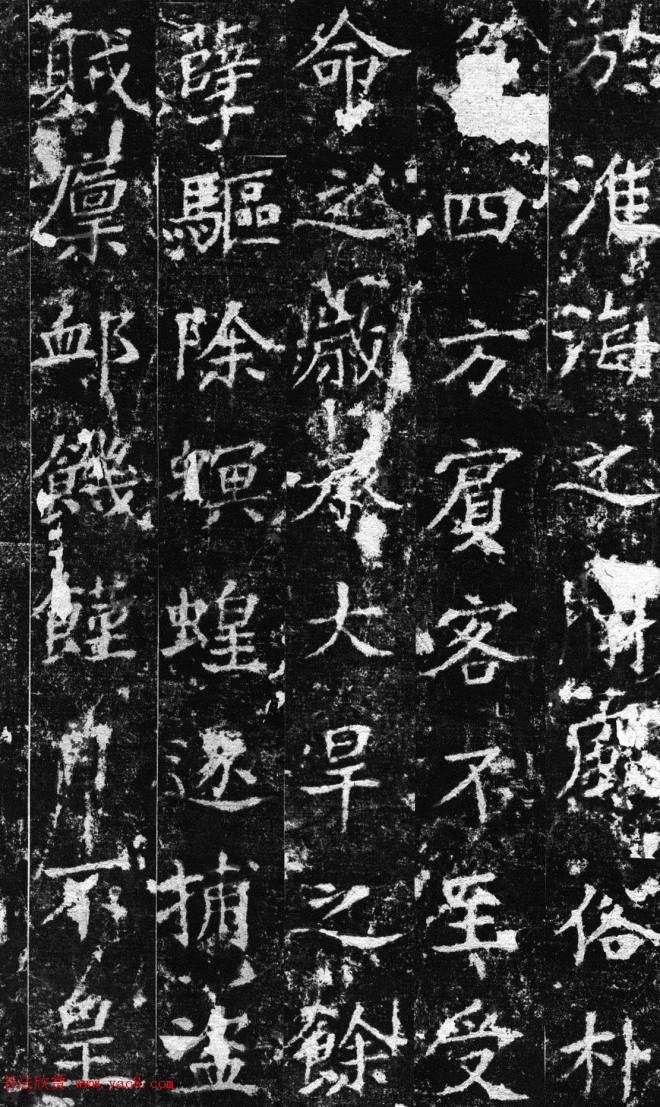 於淮海之間風俗朴
四方賓客不至受
命之歲承大旱之餘
孽驅除螟蝗逐捕盜
賊廩卹饑饉日不皇
书法欣赏 www.yac8.com